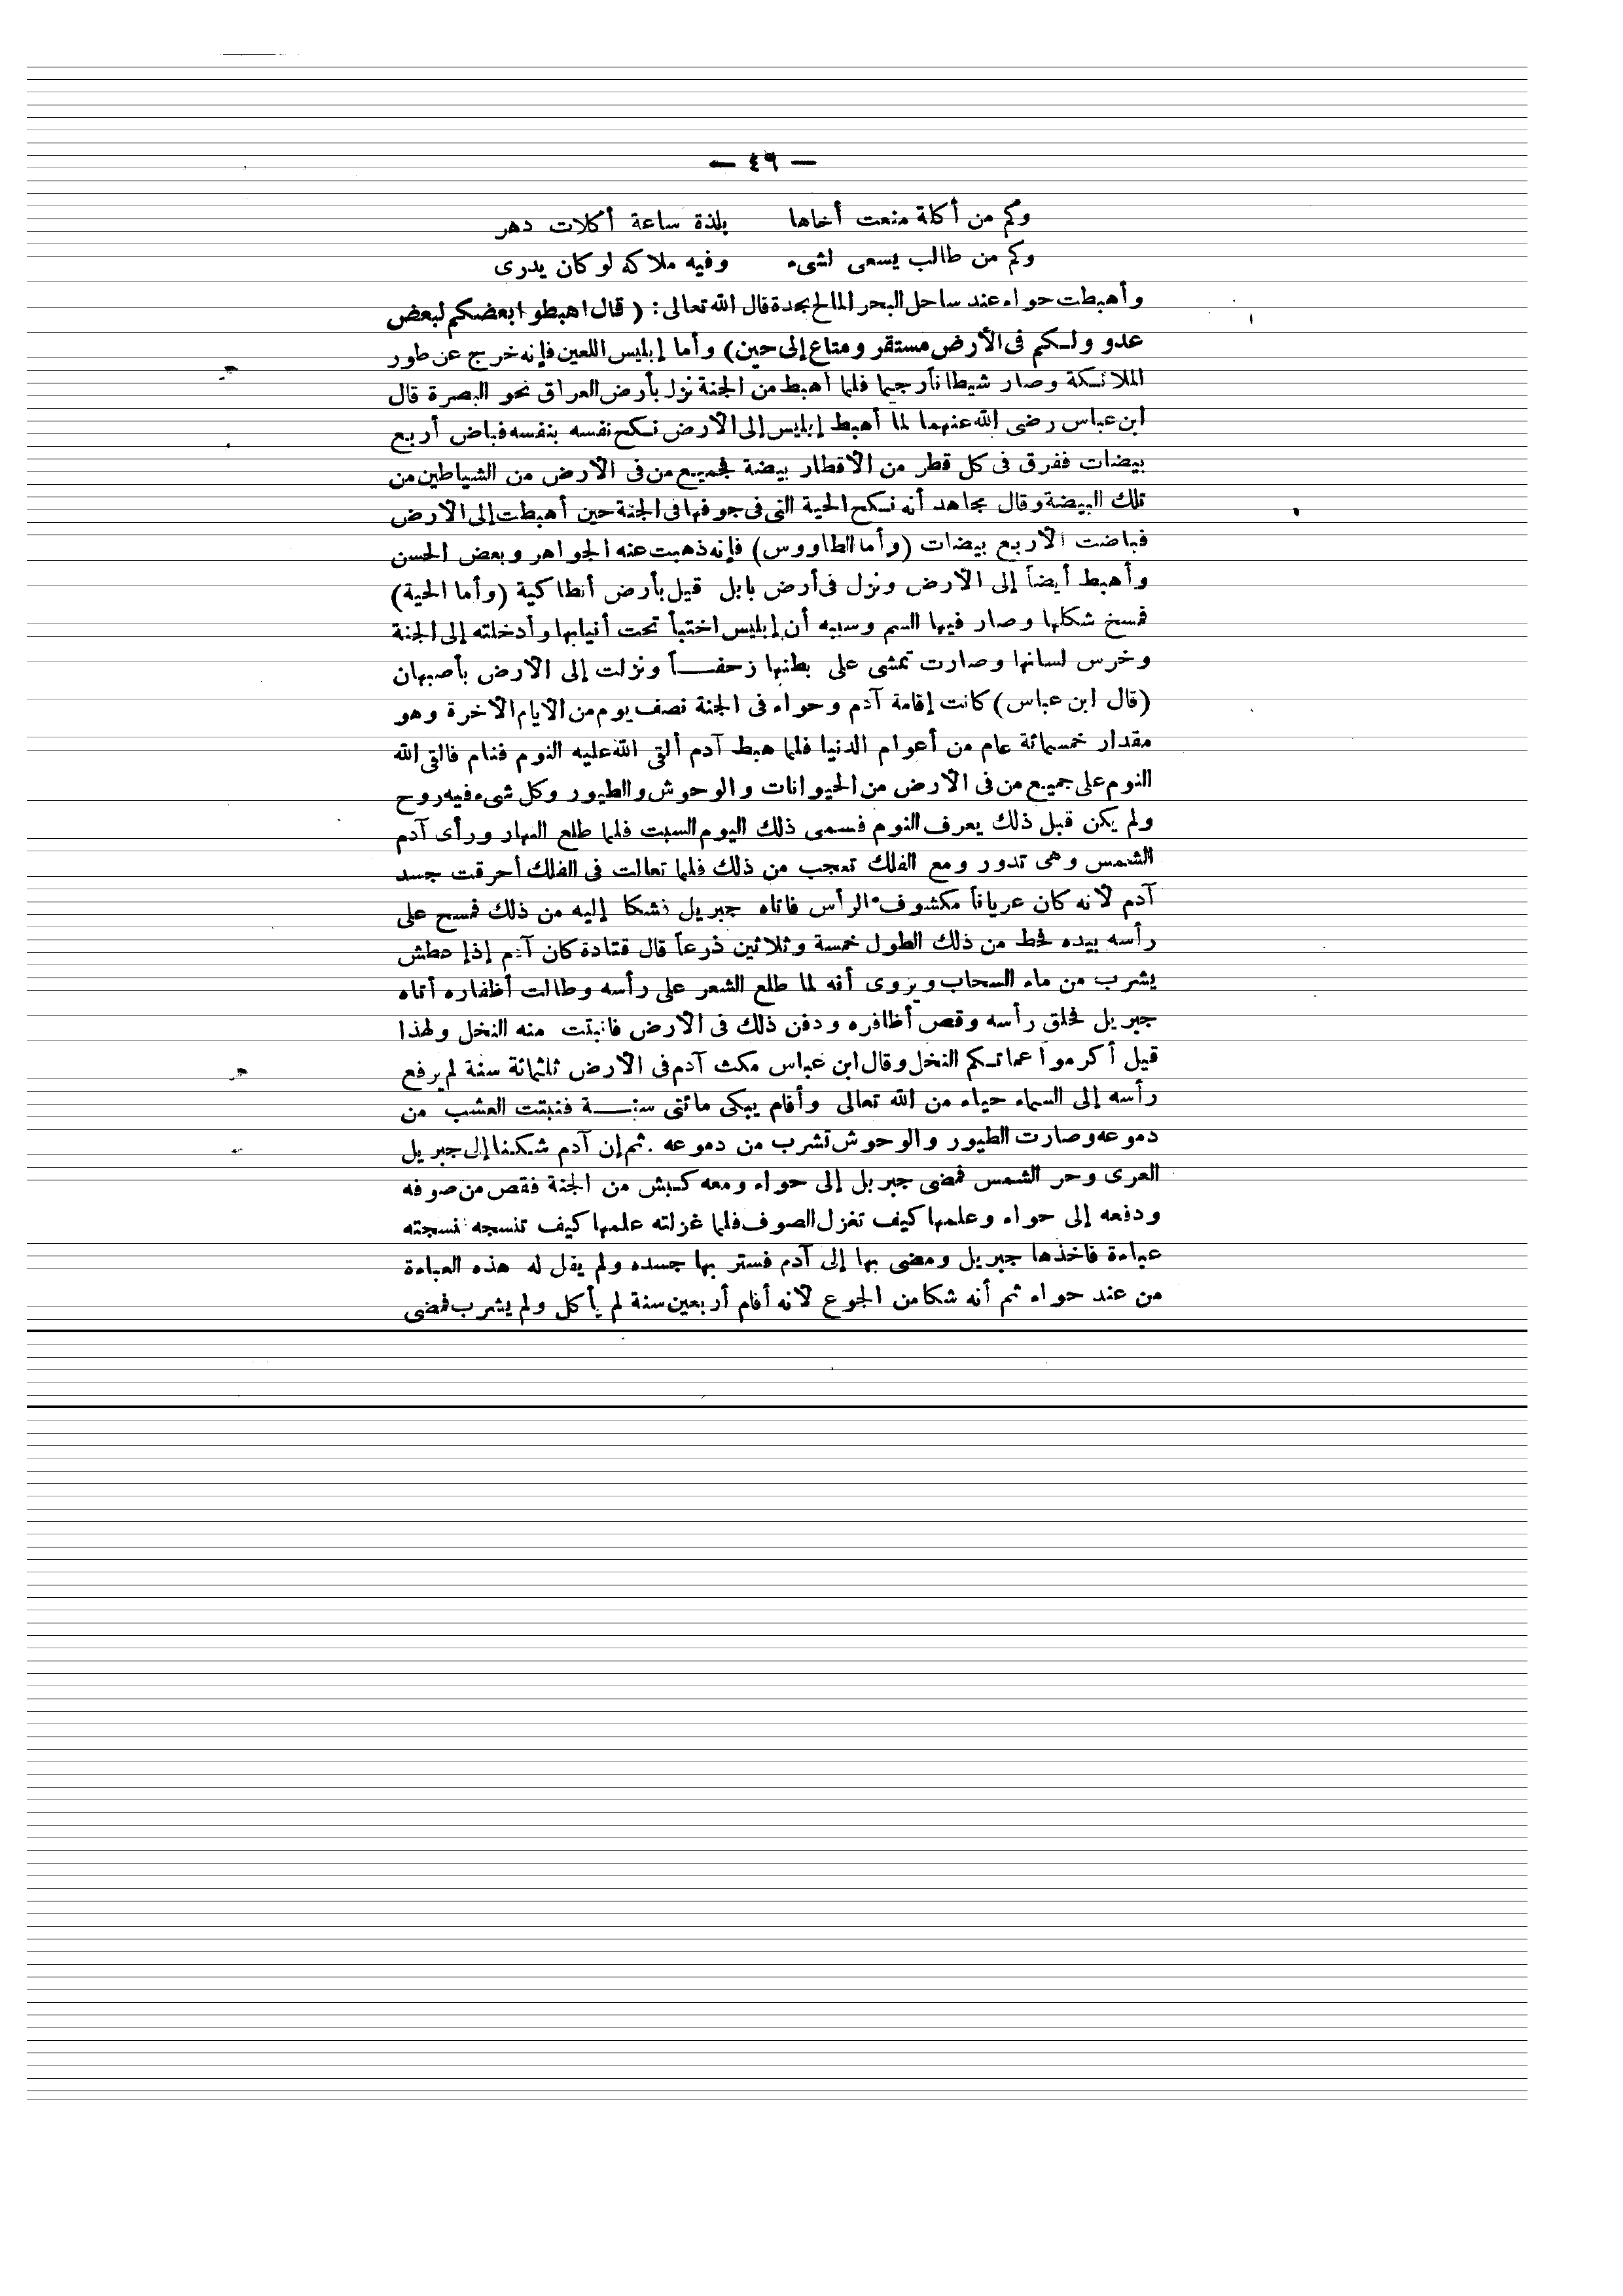 — ٤٩ —
وكم من أكلة منعت أخاها بلذة ساعة أكلات دهر
وكم من طالب يسعى لشىء وفيه هلاكه لو كان يدرى
وأهبطت حواء عند ساحل البحر المالح بجدة قال الله تعالى: ( قال اهبطوا بعضكم لبعض
عدو ولكم فى الأرض مستقر ومتاع إلى حين) وأما إبليس اللعين فإنه خرج عن طور
الملائكة وصار شيطاناً رجيما فلما أهبط من الجنة نزل بأرض العراق نحو البصرة قال
ابن عباس رضى الله عنهما لما أهبط إبليس إلى الأرض نكح نفسه بنفسه فباض أربع
بيضات ففرق فى كل قطر من الأقطار بيضة فجميع من فى الأرض من الشياطين من
تلك البيضة وقال مجاهد أنه نكح الحية التى فى جوفها فى الجنة حين أهبطت إلى الأرض
فباضت الأربع بيضات (وأما الطاووس) فإنه ذهبت عنه الجواهر وبعض الحسن
وأهبط أيضاً إلى الأرض ونزل فى أرض بابل قيل بأرض أنطاكية (وأما الحية)
فمسخ شكلها وصار فيها السم وسببه أن إبليس اختبأ تحت أنيابها وأدخلته إلى الجنة
وخرس لسانها وصارت تمشى على بطنها زحفــاً ونزلت إلى الأرض بأصبهان
(قال ابن عباس) كانت إقامة آدم وحواء فى الجنة نصف يوم من الأيام الآخرة وهو
مقدار خمسمائة عام من أعوام الدنيا فلما هبط آدم ألقى الله عليه النوم فنام فالقى الله
النوم على جميع من فى الأرض من الحيوانات والوحوش والطيور وكل شىء فيه روح
ولم يكن قبل ذلك يعرف النوم فسمى ذلك اليوم السبت فلما طلع النهار ورأى آدم
الشمس وهى تدور ومع الفلك تعجب من ذلك فلما تعالت فى الفلك أحرقت جسد
آدم لأنه كان عرياناً مكشوف الرأس فاتاه جبريل فشكا إليه من ذلك فمسح على
رأسه بيده فحط من ذلك الطول خمسة وثلاثين ذرعاً قال قتادة كان آدم إذا عطش
يشرب من ماء السحاب ويروى أنه لما طلع الشعر على رأسه وطالت أظفاره أتاه
جبريل فحلق رأسه وقص أظافره ودفن ذلك فى الأرض فانبتت منه النخل ولهذا
قيل أكرموا عماتكم النخل وقال ابن عباس مكث آدم فى الأرض ثلثمائة سنة لم يرفع
رأسه إلى السماء حياء من الله تعالى وأقام يبكى مائتى سنــة فنبتت العشب من
دموعه وصارت الطيور والوحوش تشرب من دموعه . ثم إن آدم شكا إلى جبريل
العرى وحر الشمس فمضى جبريل إلى حواء ومعه كبش من الجنة فقص من صوفه
ودفعه إلى حواء وعلمها كيف تغزل الصوف فلما غزلته علمها كيف تنسجه فنسجته
عباءة فاخذها جبريل ومضى بها إلى آدم فستر بها جسده ولم يقل له هذه العباءة
من عند حواء ثم أنه شكا من الجوع لأنه أقام أربعين سنة لم يأكل ولم يشرب فمضى